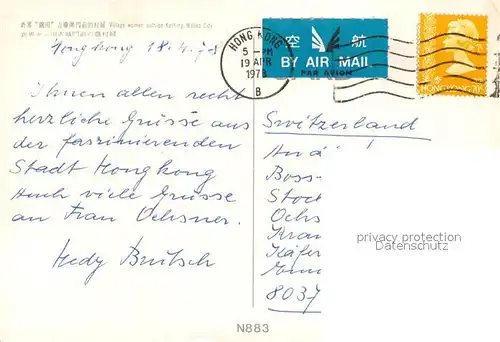 新界"錦田"吉慶圍門前的村婦 Village women outside Kamting Walled City
Hongkong 18.4.78
HONG KONG
5 - PM
19 APR
1978
B
空 航
BY AIR MAIL
PAR AVION
HONG KONG
Ihnen allen recht
herzliche Grüsse aus
der faszinierenden
Stadt Hongkong
Auch viele Grüsse
an Frau Ochsner.
Hedy Brütsch
Switzerland
Boss-
Stock
Ochs
Kran
Käfer
8037
privacy protection
Datenschutz
N883